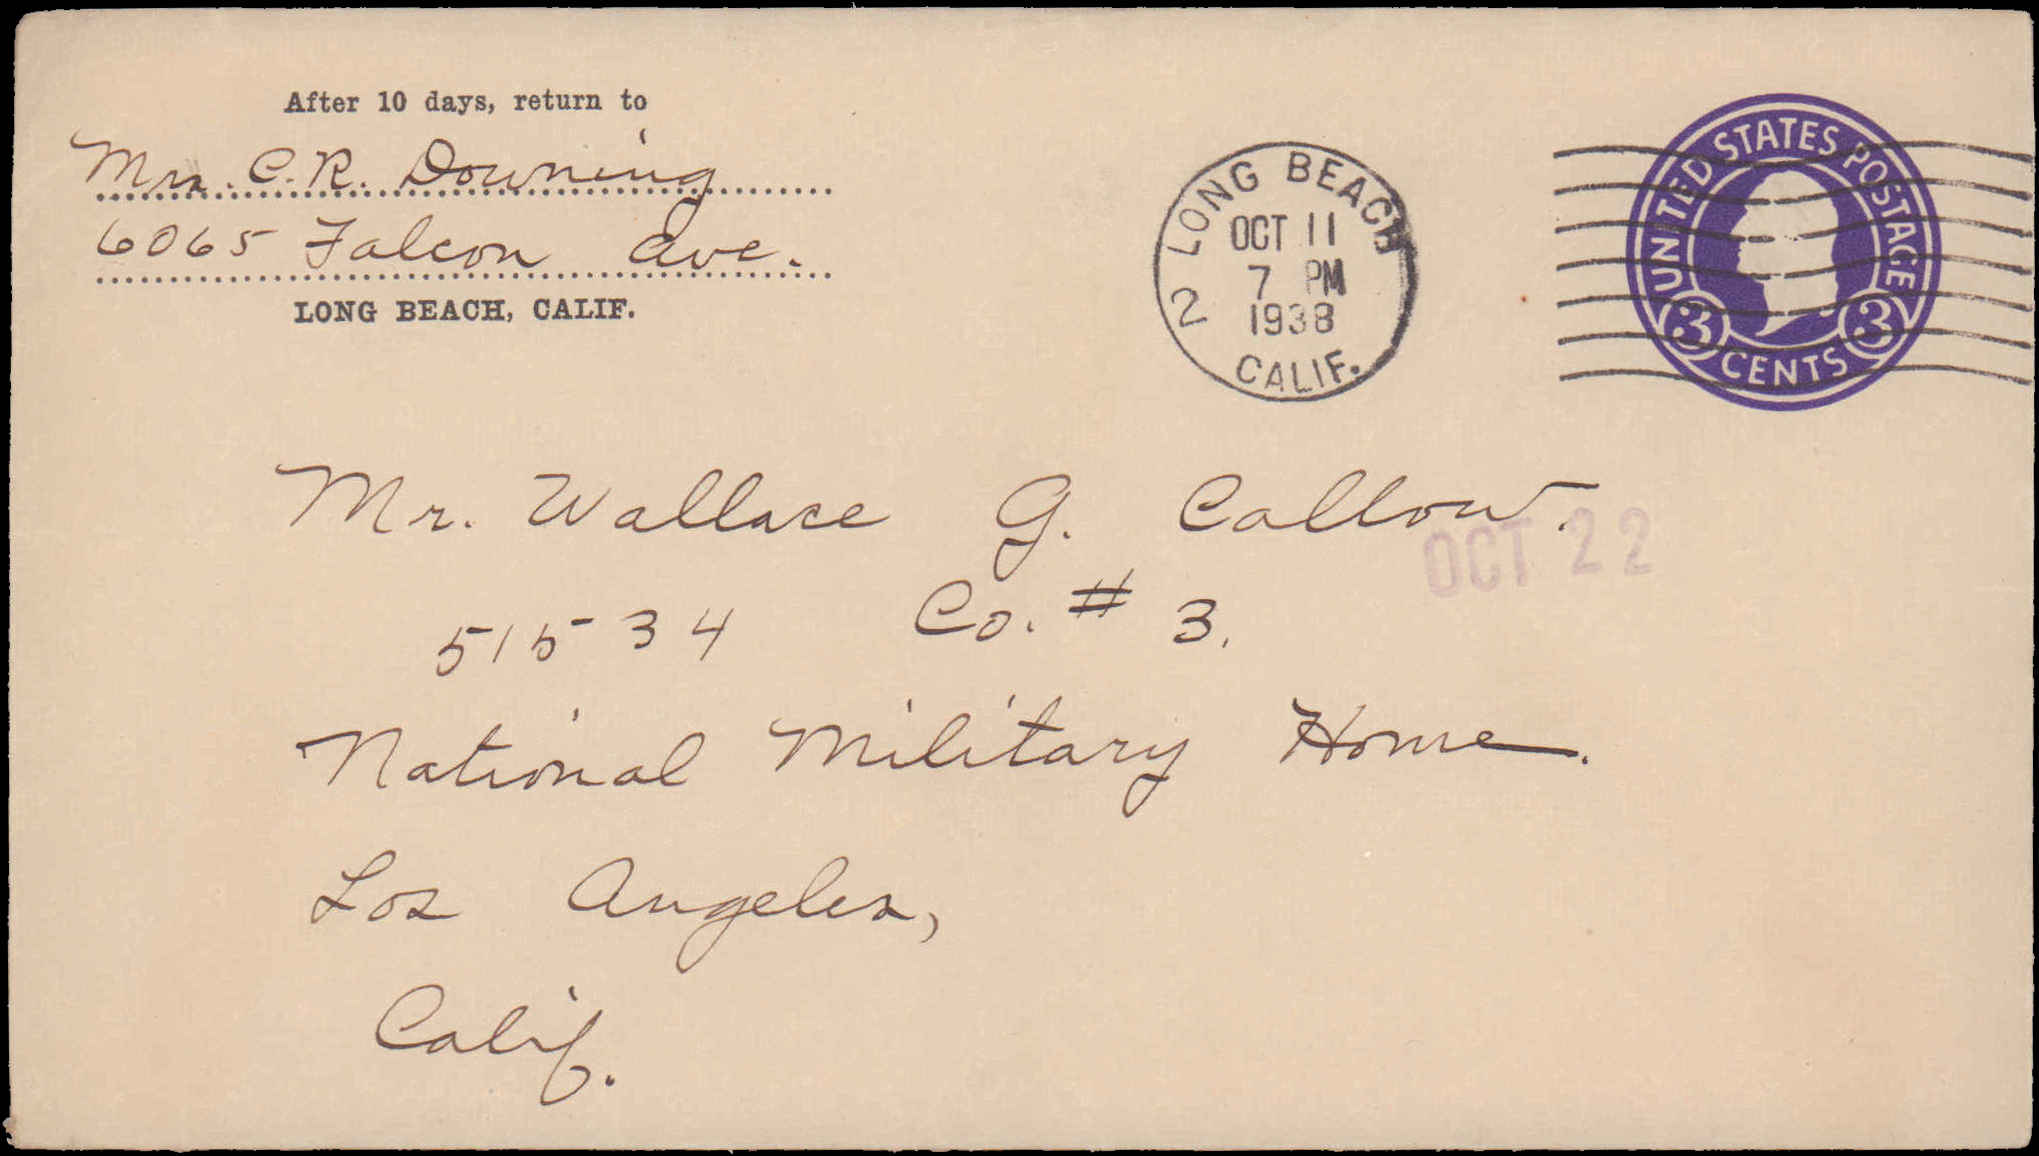 After 10 days, return to
Mrs. C. R. Downing
6065 Falcon Ave.
LONG BEACH, CALIF.
LONG BEACH
OCT 11
7 PM
1938
2
CALIF.
UNITED STATES POSTAGE
3 CENTS 3
Mr. Wallace G. Callow.
OCT 22
51534 Co. # 3.
National Military Home.
Los Angeles,
Calif.